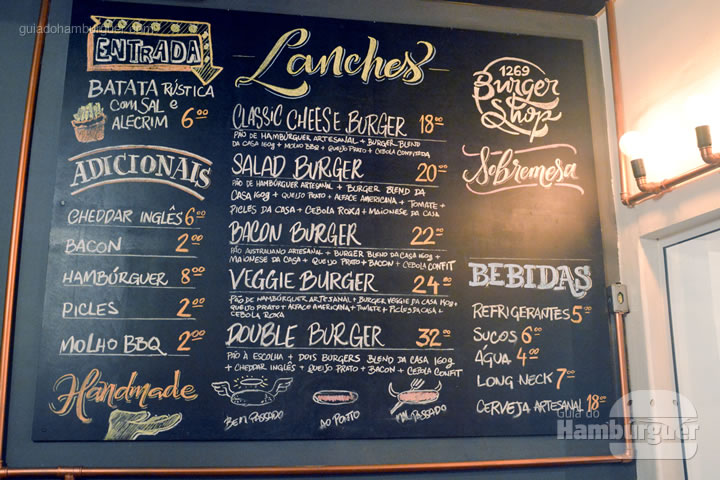 guiadohamburguer.com
ENTRADA
BATATA RÚSTICA
COM SAL E
ALECRIM 6,00
ADICIONAIS
CHEDDAR INGLÊS 6,00
BACON 2,00
HAMBÚRGUER 8,00
PICLES 2,00
MOLHO BBQ 2,00
Handmade
Lanches
CLASSIC CHEESE BURGER 18,00
PÃO DE HAMBÚRGUER ARTESANAL + BURGER BLEND
DA CASA 160g + MOLHO BBQ + QUEIJO PRATO + CEBOLA CONFITADA
SALAD BURGER 20,00
PÃO DE HAMBÚRGUER ARTESANAL + BURGER BLEND DA
CASA 160g + QUEIJO PRATO + ALFACE AMERICANA + TOMATE +
PICLES DA CASA + CEBOLA ROXA + MAIONESE DA CASA
BACON BURGER 22,00
PÃO AUSTRALIANO ARTESANAL + BURGER BLEND DA CASA 160g +
MAIONESE DA CASA + QUEIJO PRATO + BACON + CEBOLA CONFIT
VEGGIE BURGER 24,00
PÃO DE HAMBÚRGUER ARTESANAL + BURGER VEGGIE DA CASA 140g +
QUEIJO PRATO + ALFACE AMERICANA + TOMATE + PICLES DA CASA +
CEBOLA ROXA
DOUBLE BURGER 32,00
PÃO À ESCOLHA + DOIS BURGERS BLEND DA CASA 160g
+ CHEDDAR INGLÊS + QUEIJO PRATO + BACON + CEBOLA CONFIT
BEM PASSADO
AO PONTO
MAL PASSADO
1269
Burger
Shop
Sobremesa
BEBIDAS
REFRIGERANTES 5,00
SUCOS 6,00
ÁGUA 4,00
LONG NECK 7,00
CERVEJA ARTESANAL 18,00
Guia do
Hambúrguer